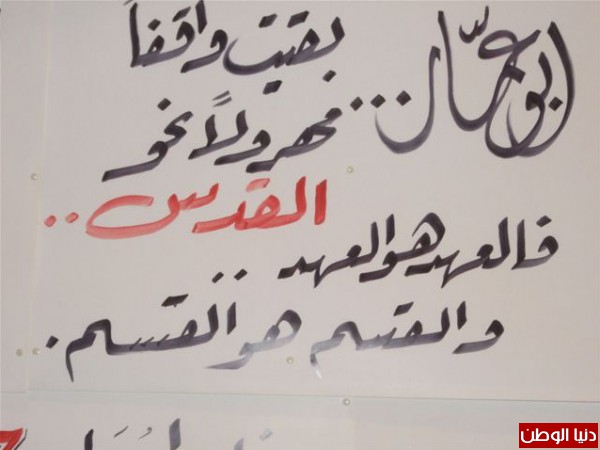 ابو عمّار... بقيت واقفاً
مهرولاً نحو
القدس..
فالعهد هو العهد..
والقسم هو القسم.
دنيا الوطن